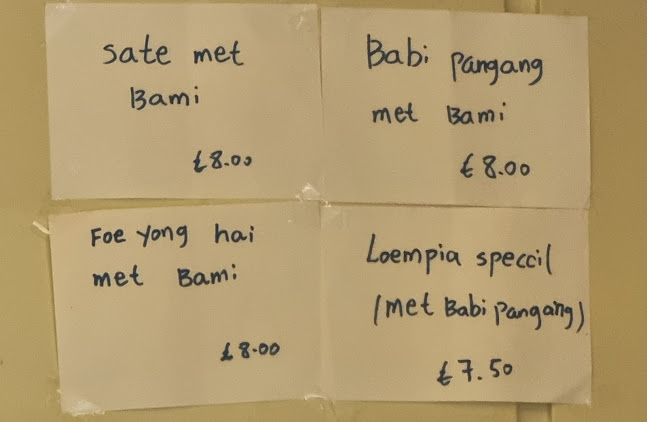 sate met
Bami
£8.00
Babi pangang
met Bami
£8.00
Foe yong hai
met Bami
£8.00
Loempia speccil
(met Babi pangang)
£7.50